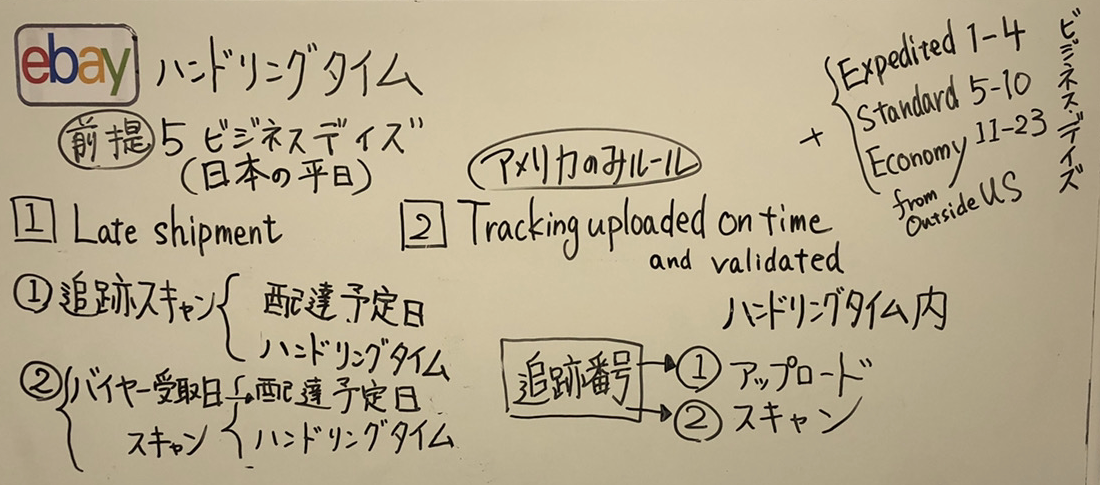 ebay ハンドリングタイム
前提 5 ビジネスデイズ
(日本の平日)
+ Expedited 1-4
Standard 5-10
Economy 11-23
from Outside US
ビジネスデイズ
アメリカのみルール
1 Late shipment
① 追跡スキャン 配達予定日
ハンドリングタイム
② バイヤー受取日→配達予定日
スキャン ハンドリングタイム
2 Tracking uploaded on time
and validated
ハンドリングタイム内
追跡番号 → ① アップロード
→ ② スキャン